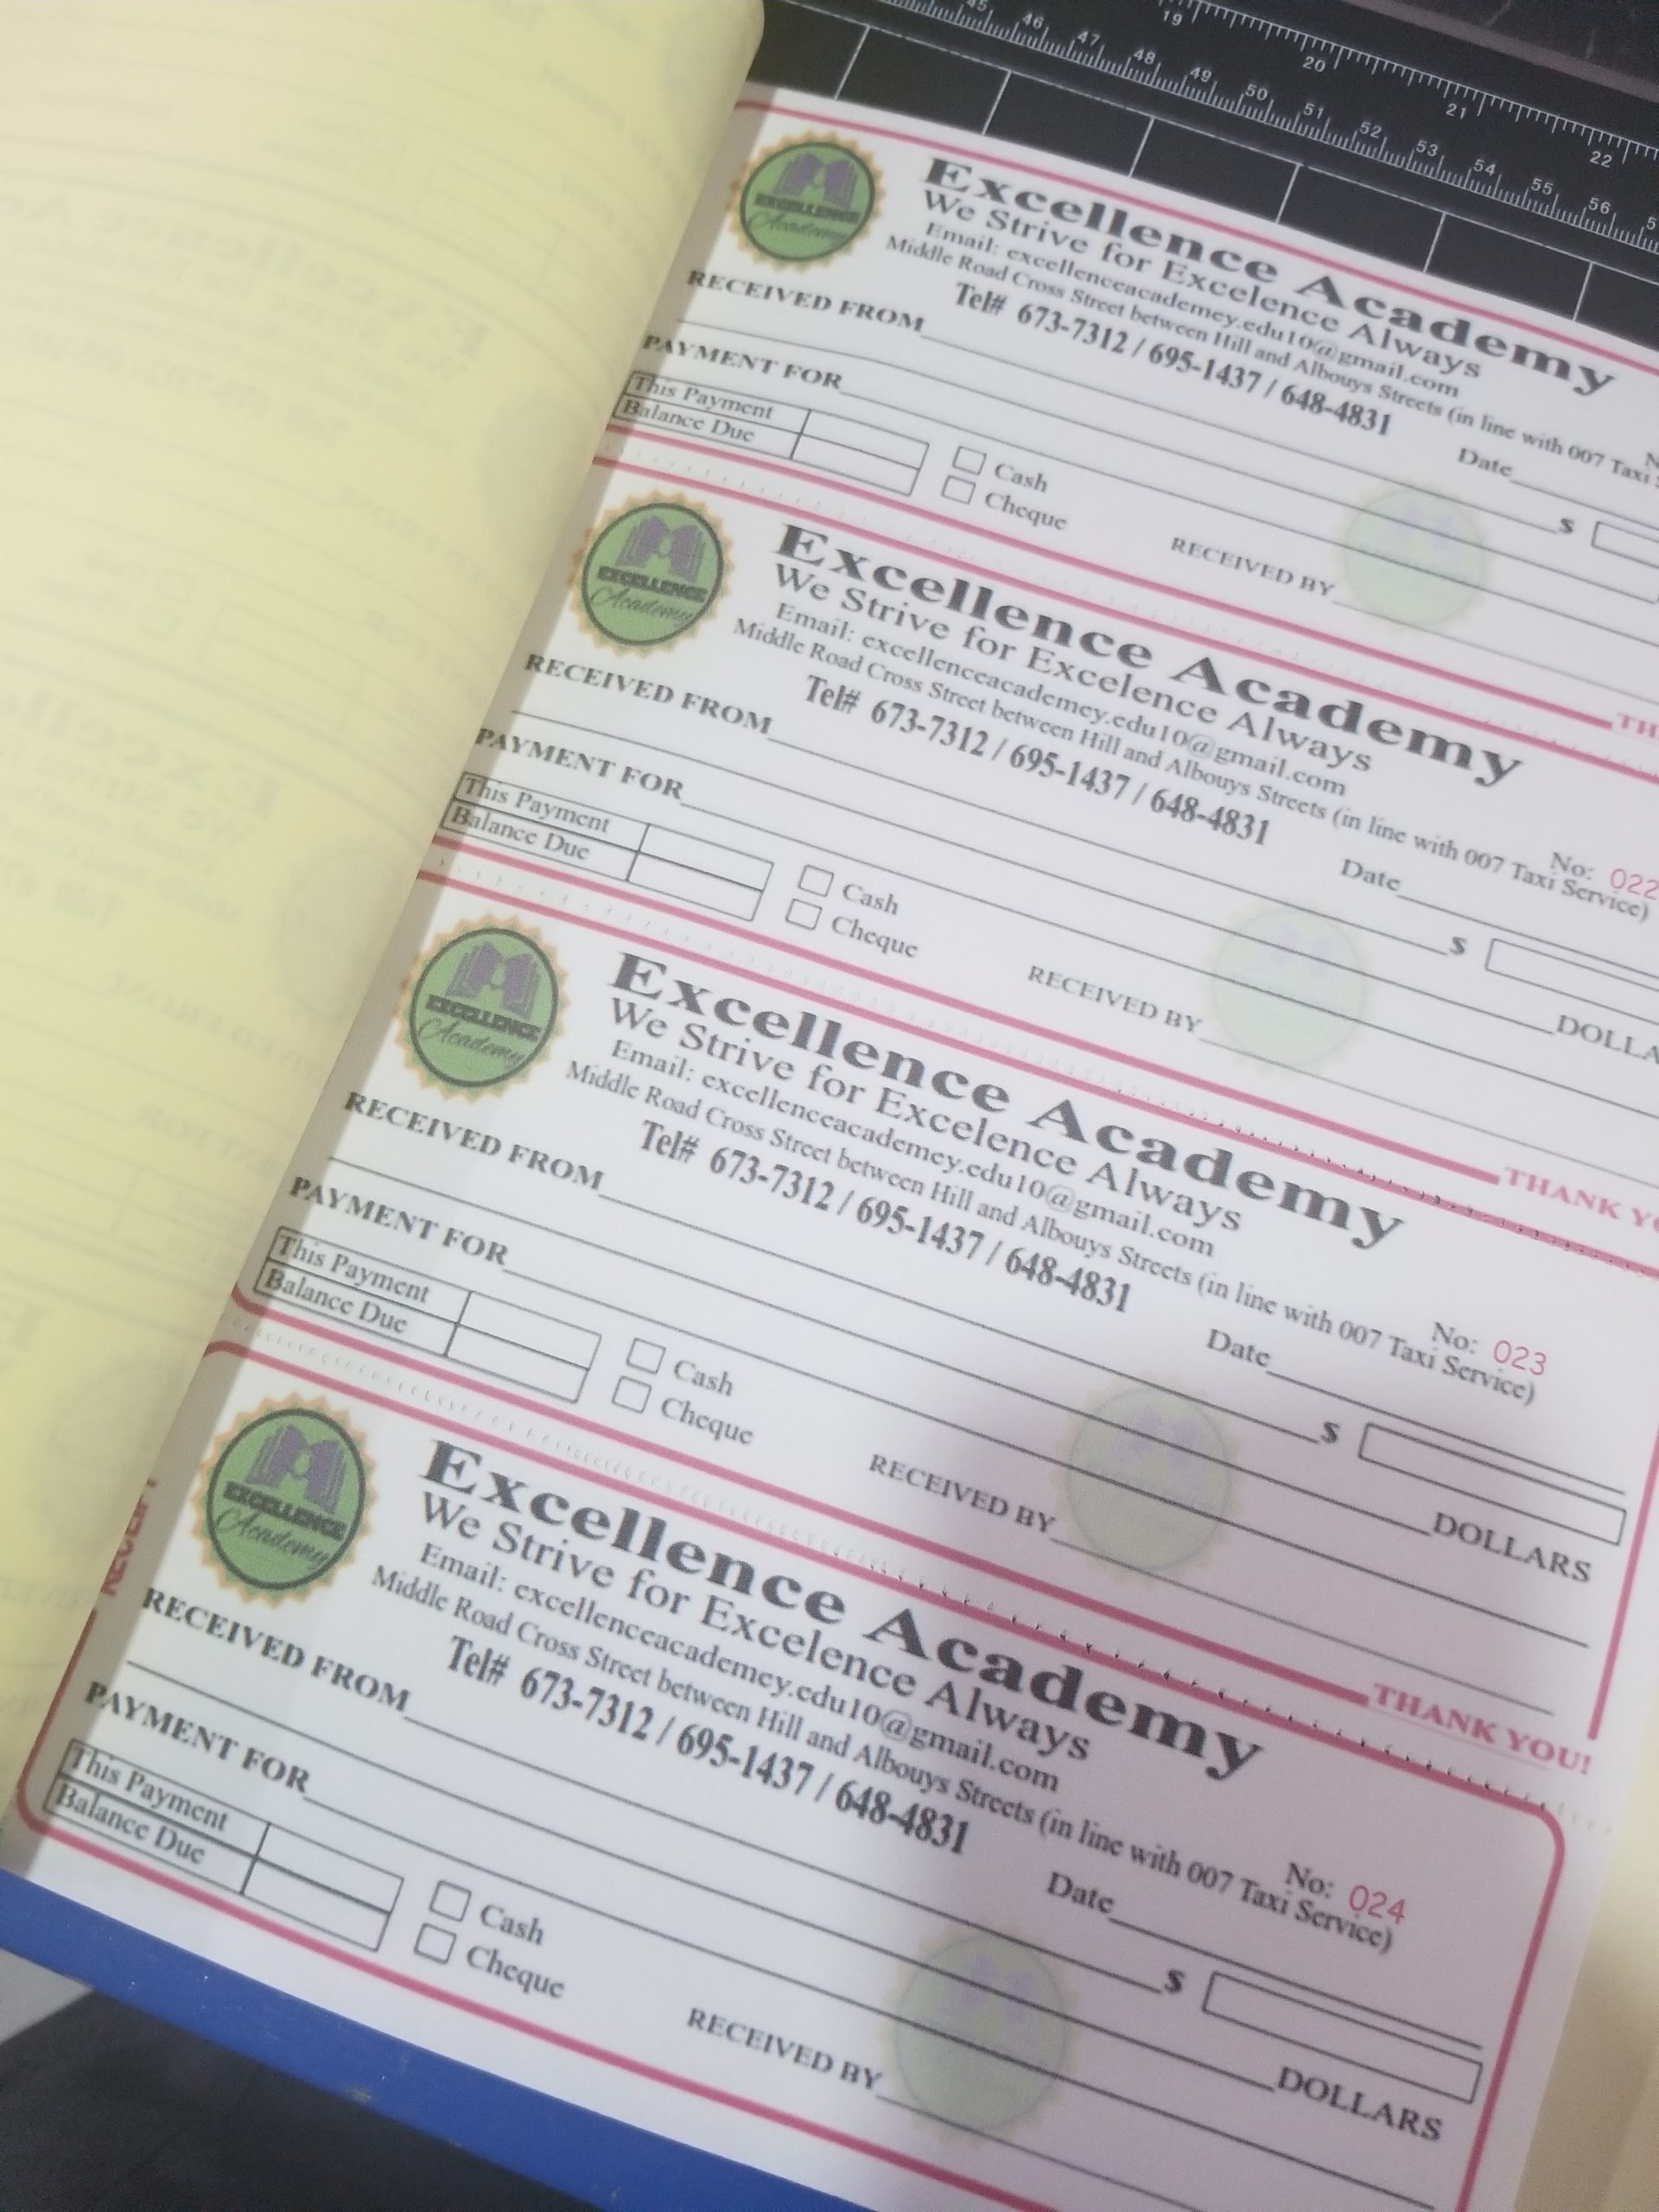 45 46 47 48 49 50 51 52 53 54 55 56
19 20 21 22
EXCELLENCE
Academy
Excellence Academy
We Strive for Excelence Always
Email: excellenceacademey.edu10@gmail.com
Middle Road Cross Street between Hill and Albouys Streets (in line with 007 Taxi
Tel# 673-7312 / 695-1437 / 648-4831
Date
RECEIVED FROM
$
PAYMENT FOR
This Payment
Balance Due
Cash
Cheque
RECEIVED BY
EXCELLENCE
Academy
Excellence Academy
We Strive for Excelence Always
Email: excellenceacademey.edu10@gmail.com
Middle Road Cross Street between Hill and Albouys Streets (in line with 007 Taxi Service)
Tel# 673-7312 / 695-1437 / 648-4831
No: 022
Date
RECEIVED FROM
$
DOLLA
PAYMENT FOR
This Payment
Balance Due
Cash
Cheque
RECEIVED BY
THANK YO
EXCELLENCE
Academy
Excellence Academy
We Strive for Excelence Always
Email: excellenceacademey.edu10@gmail.com
Middle Road Cross Street between Hill and Albouys Streets (in line with 007 Taxi Service)
Tel# 673-7312 / 695-1437 / 648-4831
No: 023
Date
RECEIVED FROM
$
DOLLARS
PAYMENT FOR
This Payment
Balance Due
Cash
Cheque
RECEIVED BY
THANK YOU!
RECEIPT
EXCELLENCE
Academy
Excellence Academy
We Strive for Excelence Always
Email: excellenceacademey.edu10@gmail.com
Middle Road Cross Street between Hill and Albouys Streets (in line with 007 Taxi Service)
Tel# 673-7312 / 695-1437 / 648-4831
No: 024
Date
RECEIVED FROM
$
DOLLARS
PAYMENT FOR
This Payment
Balance Due
Cash
Cheque
RECEIVED BY